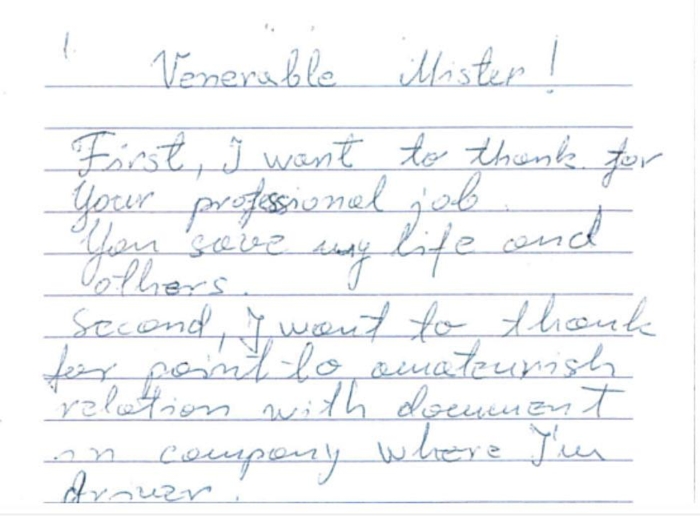 1.
Venerable Mister!
First, I want to thank for
Your professional job.
You save my life and
others.
Second, I want to thank
for point to amateurish
relation with document
in company where I'm
driver.